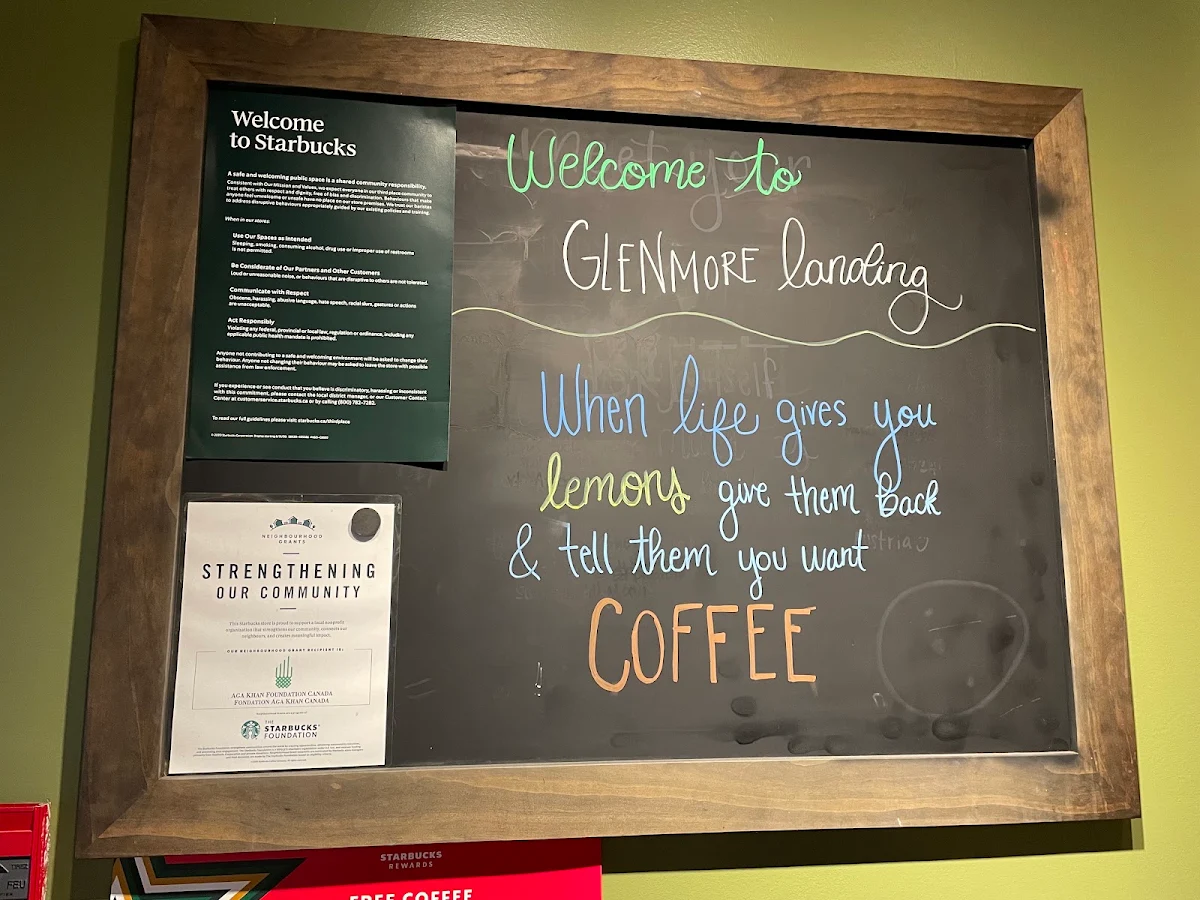 Welcome
to Starbucks
A safe and welcoming public space is a shared community responsibility.
Consistent with Our Mission and Values, we expect everyone in our third place community to
treat others with respect and dignity, free of bias and discrimination. Behaviours that make
anyone feel unwelcome or unsafe have no place on our store premises. We trust our baristas
to address disruptive behaviours appropriately guided by our existing policies and training.
When in our stores:
Use Our Spaces as Intended
Sleeping, smoking, consuming alcohol, drug use or improper use of restrooms
is not permitted.
Be Considerate of Our Partners and Other Customers
Loud or unreasonable noise, or behaviours that are disruptive to others are not tolerated.
Communicate with Respect
Obscene, harassing, abusive language, hate speech, racial slurs, gestures or actions
are unacceptable.
Act Responsibly
Violating any federal, provincial or local law, regulation or ordinance, including any
applicable public health mandate is prohibited.
Anyone not contributing to a safe and welcoming environment will be asked to change their
behaviour. Anyone not changing their behaviour may be asked to leave the store with possible
assistance from law enforcement.
If you experience or see conduct that you believe is discriminatory, harassing or inconsistent
with this commitment, please contact the local district manager, or our Customer Contact
Center at customerservice.starbucks.ca or by calling (800) 782-7282.
To read our full guidelines please visit: starbucks.ca/thirdplace
Welcome to
GLENMORE landing
When life gives you
lemons give them back
& tell them you want
COFFEE
NEIGHBOURHOOD
GRANTS
STRENGTHENING
OUR COMMUNITY
This Starbucks store is proud to support a local nonprofit
organization that strengthens our community, connects our
neighbors, and creates meaningful impact.
OUR NEIGHBORHOOD GRANT RECIPIENT IS:
AGA KHAN FOUNDATION CANADA
FONDATION AGA KHAN CANADA
THE
STARBUCKS
FOUNDATION
STARBUCKS
REWARDS
FREE COFFEE
FEU